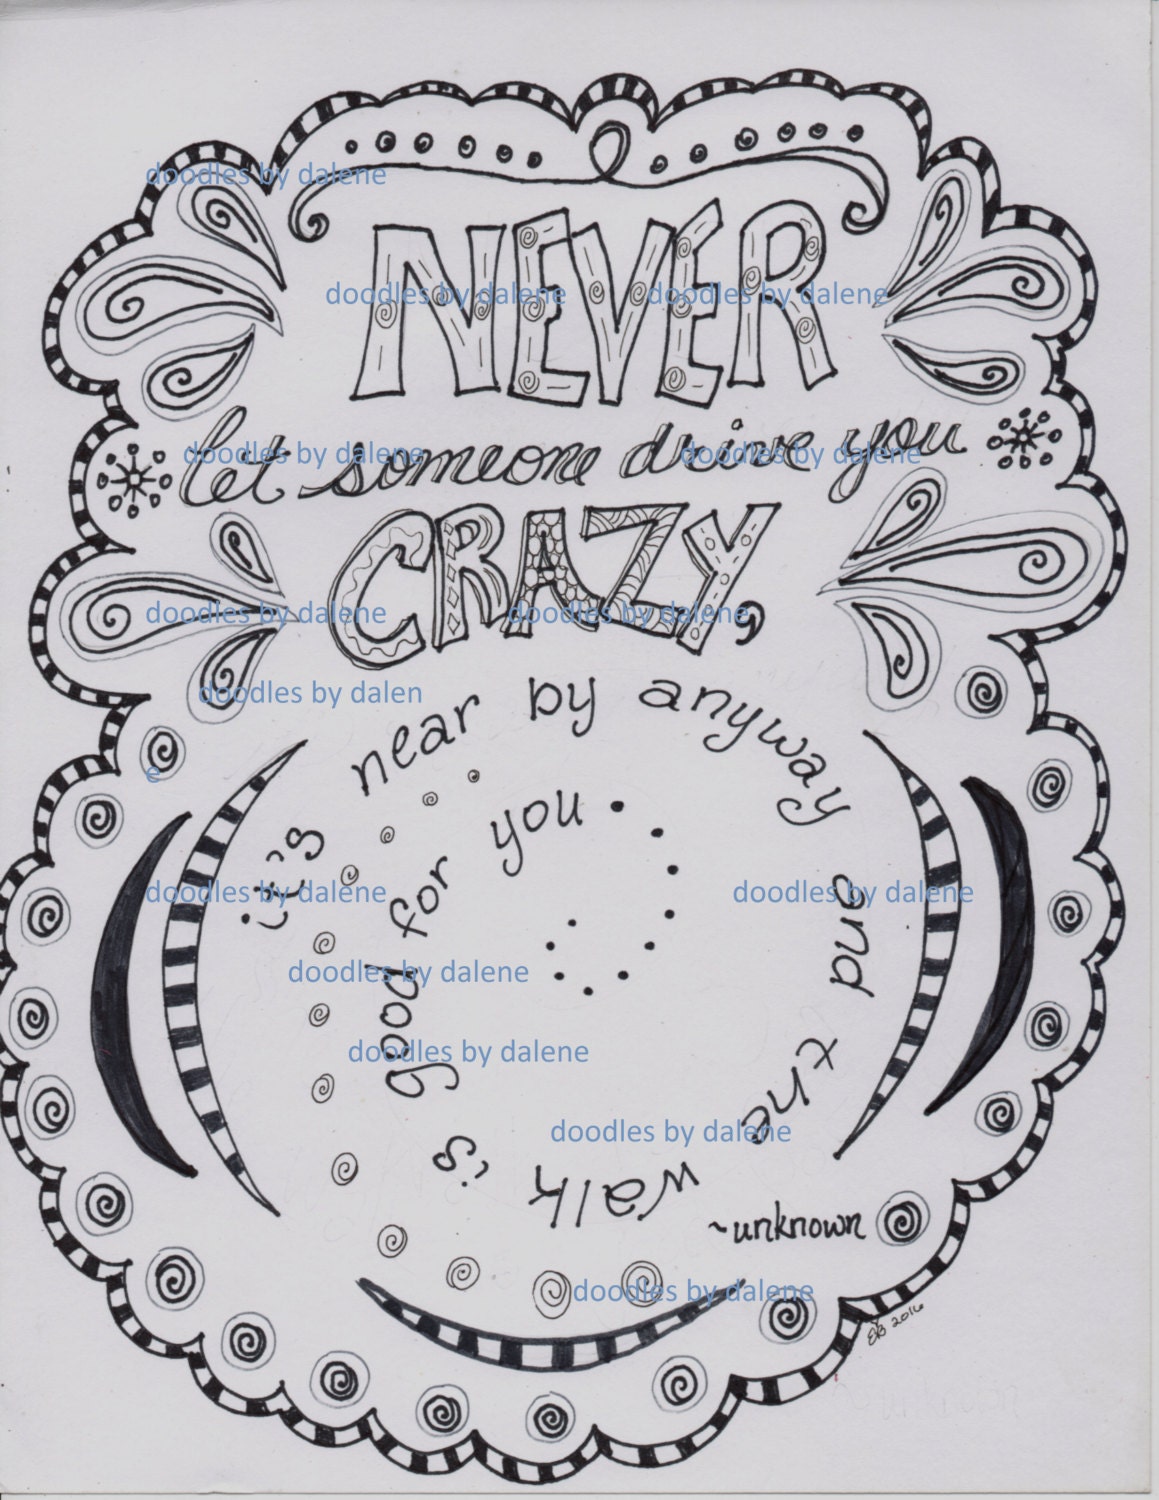 doodles by dalene
NEVER
doodles by dalene doodles by dalene
let someone drive you
doodles by dalene doodles by dalene
CRAZY,
doodles by dalene doodles by dalene
doodles by dalen
e
it's near by anyway and the walk is good for you
doodles by dalene doodles by dalene
doodles by dalene
doodles by dalene
doodles by dalene
~unknown
doodles by dalene
EB 2016